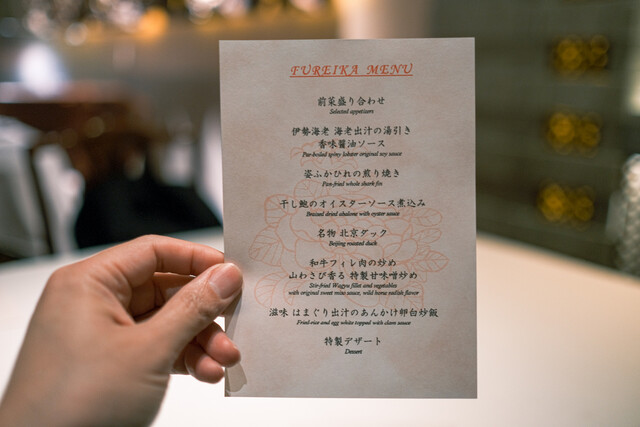 FUREIKA MENU
前菜盛り合わせ
Selected appetizers
伊勢海老 海老出汁の湯引き
香味醤油ソース
Par-boiled spiny lobster original soy sauce
姿ふかひれの煎り焼き
Pan-fried whole shark fin
干し鮑のオイスターソース煮込み
Braised dried abalone with oyster sauce
名物 北京ダック
Beijing roasted duck
和牛フィレ肉の炒め
山わさび香る 特製甘味噌炒め
Stir-fried Wagyu fillet and vegetables
with original sweet miso sauce, wild horse radish flavor
滋味 はまぐり出汁のあんかけ卵白炒飯
Fried rice and egg white topped with clam sauce
特製デザート
Dessert